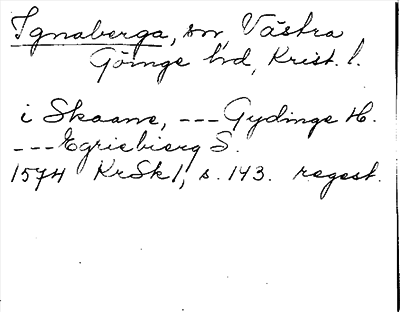 Ignaberga, sn, Västra
Göinge hd, Krist. l.
i Skaane, --- Gydinge H.
--- Egriebierg S.
1574 KrSk 1, s. 143. regest.